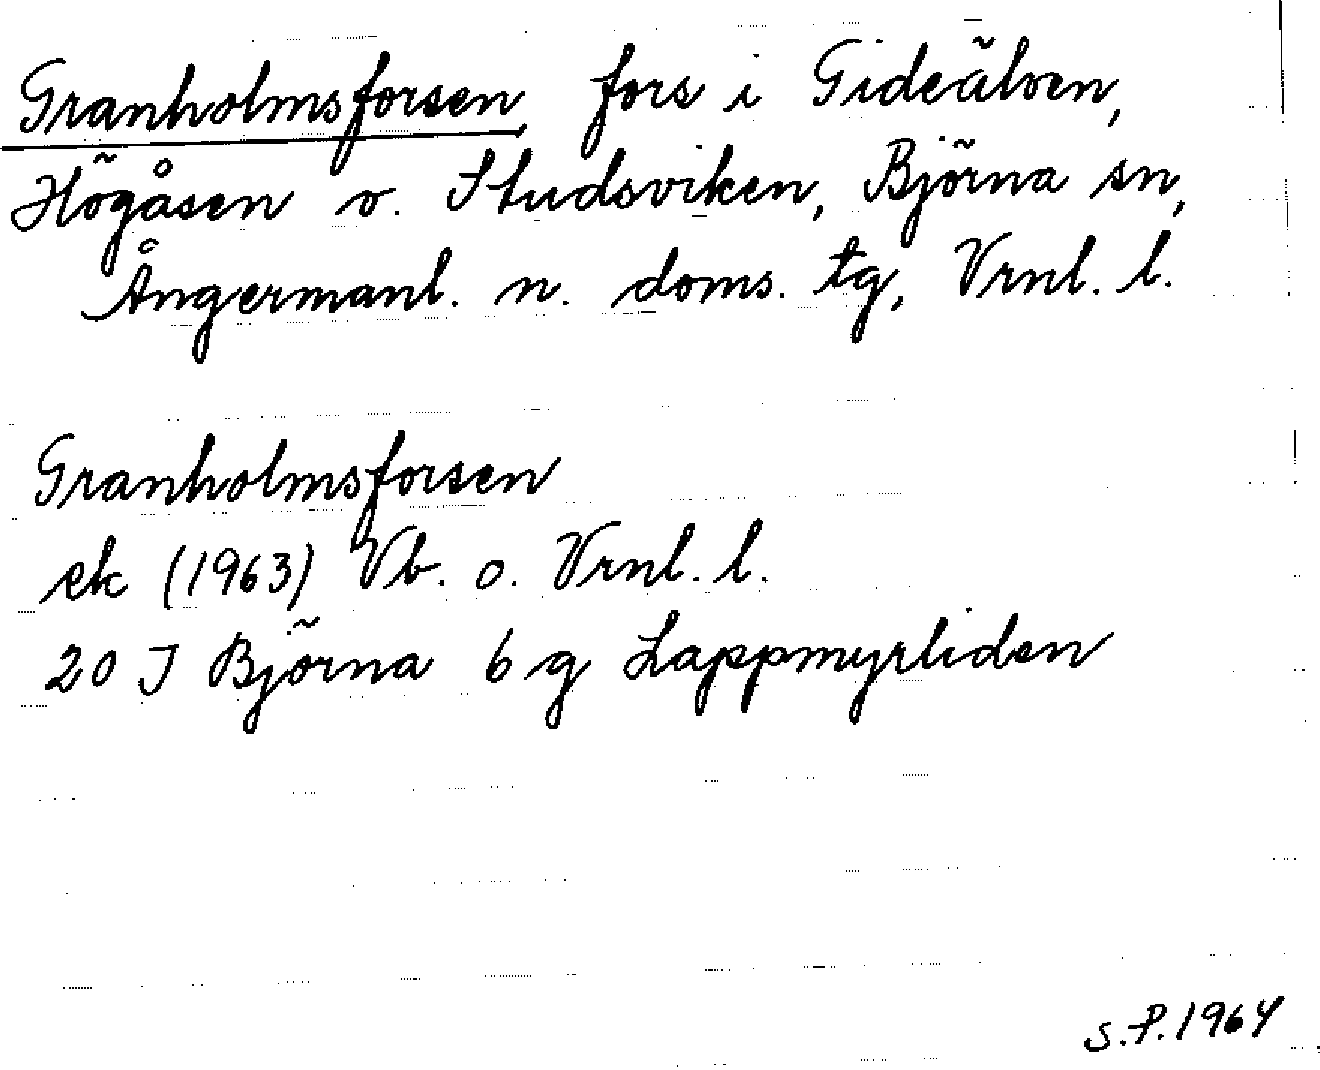 Granholmsforsen, fors i Gideälven,
Högåsen o. Studsviken, Björna sn,
Ångermanl. n. doms. tg, Vrnl. l.
Granholmsforsen
ek (1963) Vb. o. Vrnl. l.
20 J Björna 6 g Lappmyrliden
S.P. 1964